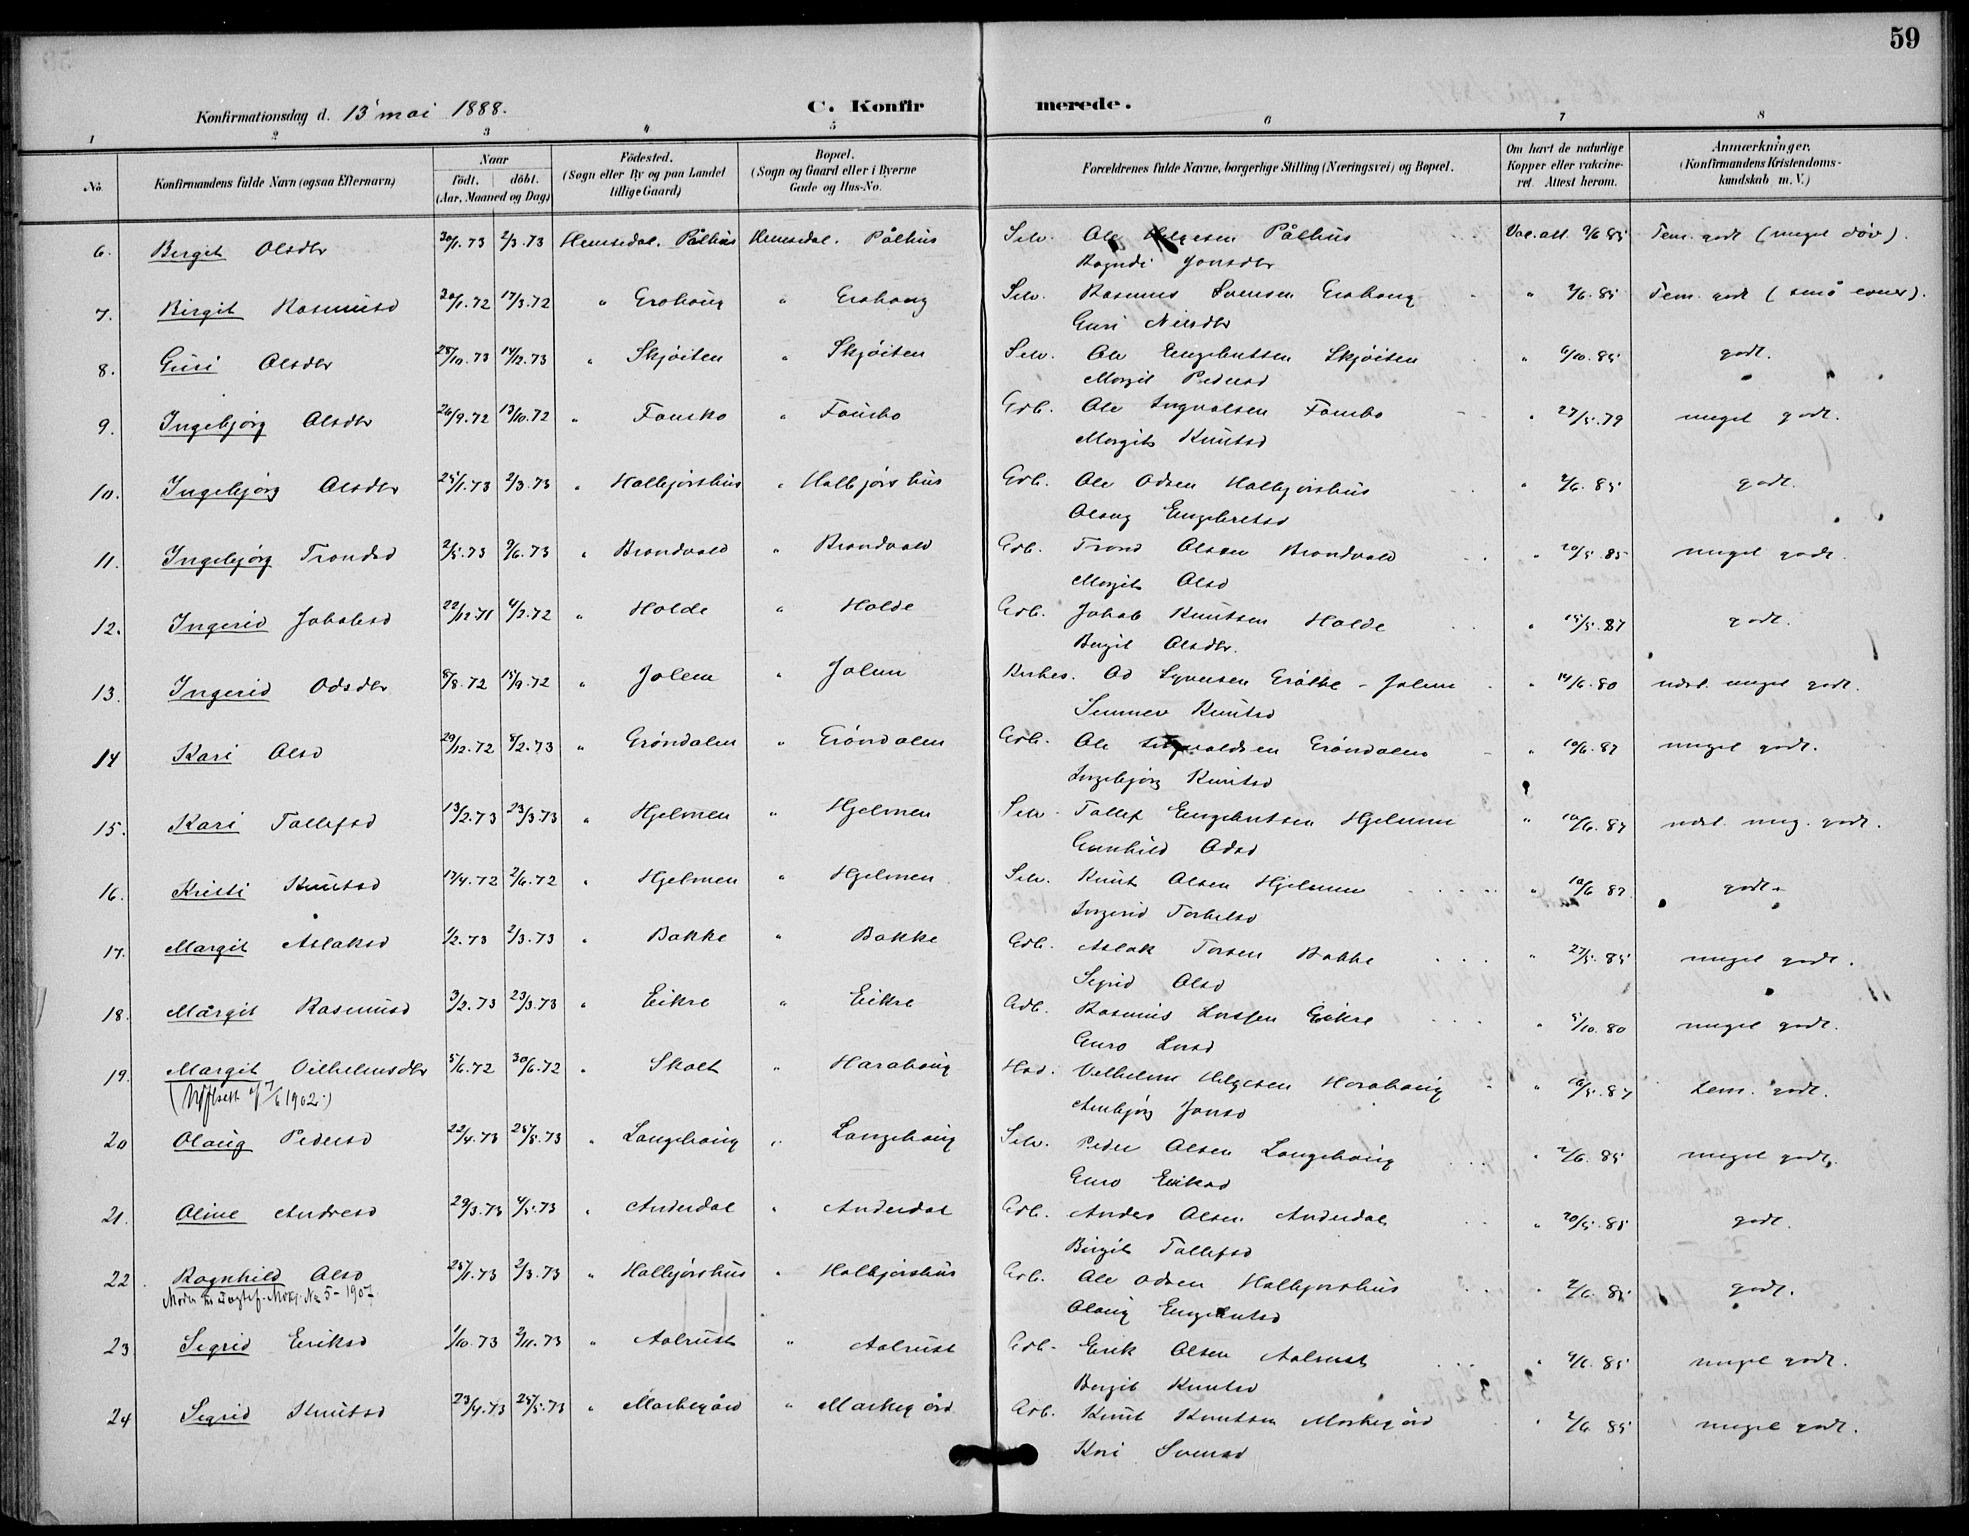 59
Konfirmationsdag d. 13 mai 1888.
C. Konfir merede.
1 2 3 4 5 6 7 8
No. Konfirmandens fulde Navn (ogsaa Efternavn) Naar Födt. döbt. (Aar, Maaned og Dag) Födested. (Sogn eller By og paa Landet tillige Gaard) Bopæl. (Sogn og Gaard eller i Byerne Gade og Hus-No. Forældrenes fulde Navne, borgerlige Stilling (Næringsvei) og Bopæl. Om havt de naturlige Kopper eller vakcineret. Attest herom. Anmærkninger, (Konfirmandens Kristendomskundskab m. V.)
6. Bergit Olsdtr 30/1.73 2/3.73 Hemsedal. Pålhus Hemsedal. Pålhus Selv. Ole Helgesen Pålhus Vac. att. 2/6 85 Tem. godt (meget døv).
Ragndi Jonsdtr
7. Birgit Rasmusd 30/1.72 17/3.72 " Grøhaug " Grøhaug Selv. Rasmus Svensen Grøhaug " 2/6.85 Tem. godt (små evner).
Guri Nilsdtr
8. Guri Olsdtr 28/10.73 14/12.73 " Skjøiten " Skjøiten Selv. Ole Engebretsen Skjøiten " 6/10.85 godt.
Margit Pedersd
9. Ingebjørg Olsdtr 26/9.72 13/10.72 " Fausko " Fausko Grb. Ole Ingvalsen Fausko " 27/5.79 meget godt.
Margit Knutsd
10. Ingebjørg Olsdtr 25/1.73 2/3.73 " Halbjørhus " Halbjørhus Grb. Ole Odsen Halbjørhus " 2/6.85 godt.
Olaug Engebretsd
11. Ingebjørg Trondsd 2/5.73 9/6.73 " Brandvold " Brandvold Grb. Trond Olsen Brandvold " 20/5.85 meget godt.
Margit Olsd
12. Ingerid Jakobsd 22/12.71 4/2.72 " Holde " Holde Grb. Jakob Knutsen Holde " 15/5.87 godt.
Bergit Olsdtr.
13. Ingerid Odsdtr 8/8.72 15/9.72 " Jolem " Jolem Od Syversen Grøthe - Jolem " 14/6.80 udst. meget godt.
Sennev Knutsd
14 Kari Olsd 29/12.72 8/2.73 " Grøndalen " Grøndalen Grb. Ole Ingvaldsen Grøndalen " 10/6.87 meget godt.
Ingebjørg Knutsd
15. Kari Tollefsd 13/2.73 23/3.73 " Hjelmen " Hjelmen Selv. Tollef Engebretsen Hjelmen " 10/6.87 udst. meg. godt.
Gunhild Odsd
16. Kristi Knutsd 17/4.72 2/6.72 " Hjelmen " Hjelmen Selv. Knut Olsen Hjelmen " 10/6 87 godt.
Ingerid Torkelsd
17. Margit Aslaksd 1/2.73 2/3.73 " Bakke " Bakke Grb. Aslak Torsen Bakke " 27/5.85 meget godt.
Sigrid Olsd
18. Margit Rasmusd 3/2.73 23/3.73 " Eikre " Eikre Grb. Rasmus Larssen Eikre " 5/10.80 meget godt.
Guro Larsd
19. Margit Vilhelmsdtr 5/6.72 30/6.72 " Skolt " Harahaug Hsd. Vilhelm Helgesen Harahaug " 10/5.87 tem. godt.
1902.) Ambjørg Jonsd
20 Olaug Pedersd 22/4.73 25/5.73 " Langehaug " Langehaug Selv. Peder Olsen Langehaug " 2/6.85 meget godt.
Guro Eriksd
21. Oline Andresd 29/3.73 4/5.73 " Anderdal " Anderdal Grb. Anders Olsen Anderdal " 20/5.85 godt.
Birgit Tollefsd
22. Ragnhild Olsd 25/1.73 2/3.73 " Halbjørhus " Halbjørhus Grb. Ole Odsen Halbjørhus " 2/6.85 godt.
Moder til uægtef. No 5 - 1907 Olaug Engebretsd
23 Sigrid Eriksd 1/10.73 2/11.73 " Aalrust " Aalrust Grb. Erik Olsen Aalrust " 9/6.85 meget godt.
Bergit Knutsd
24 Sigrid Knutsd 23/4.73 25/5.73 " Markegård " Markegård Grb. Knut Knutsen Markegård " 2/6 85 meget godt.
Kari Svensd